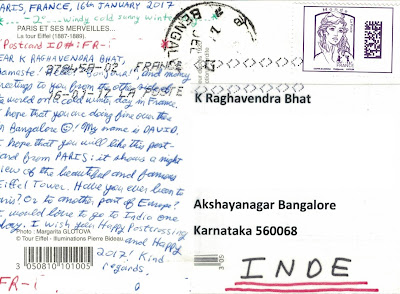 PARIS, FRANCE, 16th JANUARY 2017
-2°- windy cold sunny winter
PARIS ET SES MERVEILLES...
La tour Eiffel (1887-1889).
Postcard ID#: FR-i
DEAR K RAGHAVENDRA BHAT,
Namaste! Hello! Bonjour! and many
greetings to you from the other side of
the world on a cold winter day in France.
I hope that you are doing fine over there
in Bangalore ☺! My name is DAVID.
I hope that you will like this post-
card from PARIS: it shows a night
view of the beautiful and famous
Eiffel Tower. Have you ever been to
Paris? Or to another part of Europe?
I would love to go to India one
day. I wish you Happy Postcrossing
and Happy
2017! Kind
regards,
Photo : Margarita GLOTOVA
© Tour Eiffel - Illuminations Pierre Bideau
3 050810 101005
FR-i
37945A-02 FRANCE
16-01-17 LA POSTE
BENGAL
FRANCE
K Raghavendra Bhat
Akshayanagar Bangalore
Karnataka 560068
3·05
INDE